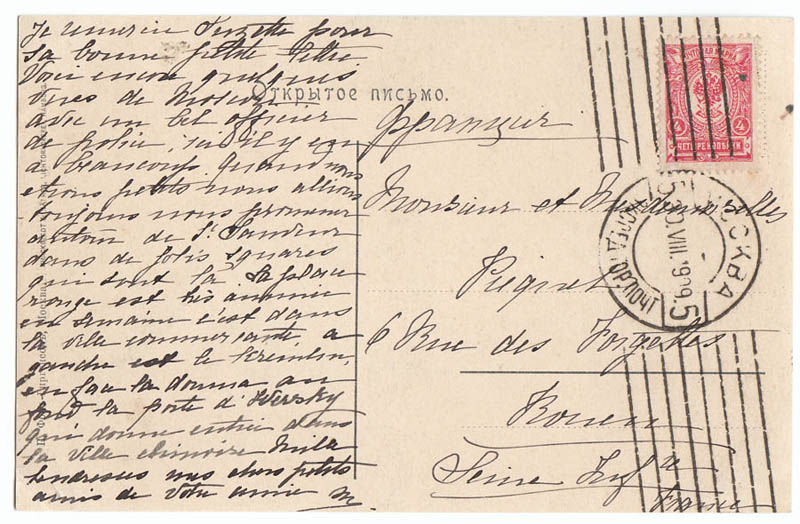 Je remercie Suzette pour
sa bonne petite lettre
Voici encore quelques
vues de Moscou
avec un bel officier
de police, ici il y en
a beaucoup. Quand nous
etions petits nous allions
toujours nous promener
autour de St
dans de jolis squares
qui sont là. La place
rouge est très animée
en semaine c'est dans
la ville commerçante, a
gauche est le Kremlin,
en face la douma au
fond la porte d'Iversky
qui donne entrée dans
la ville chinoise Mille
tendresses mes chers petits
amis de votre amie M.
Открытое письмо.
Франция
Monsieur et Mesdemoiselles
6 Rue des
Rouen
Seine Infre
France
ПОЧТОВАЯ МАРКА
4 4
ЧЕТЫРЕ КОПѢЙКИ
МОСКВА
VIII.1909
5